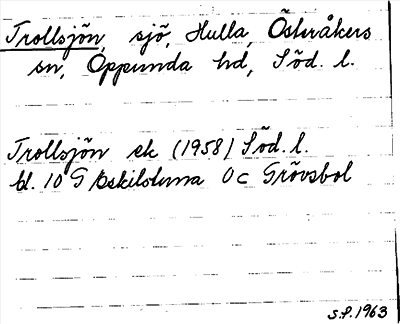 Trollsjön, sjö, Hulla, Österåkers
sn, Oppunda hd, Söd. l.
Trollsjön ek (1958) Söd. l.
bl. 10 G Eskilstuna 0c Grövsbol
S.P. 1963